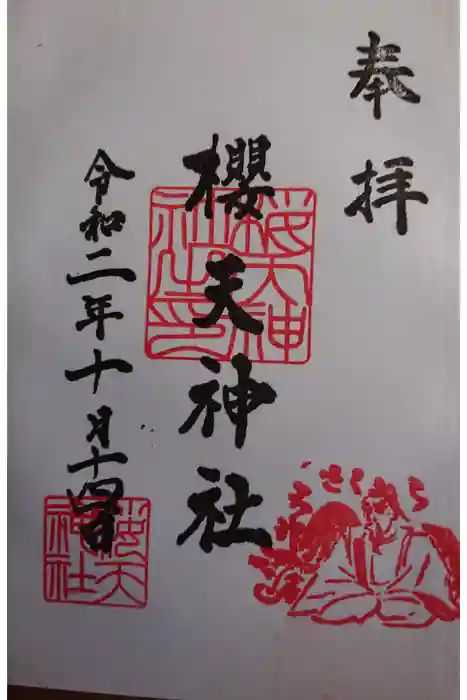 奉拝
櫻天神社
櫻天神社之印
令和二年十月十四日
櫻天神社
さくら